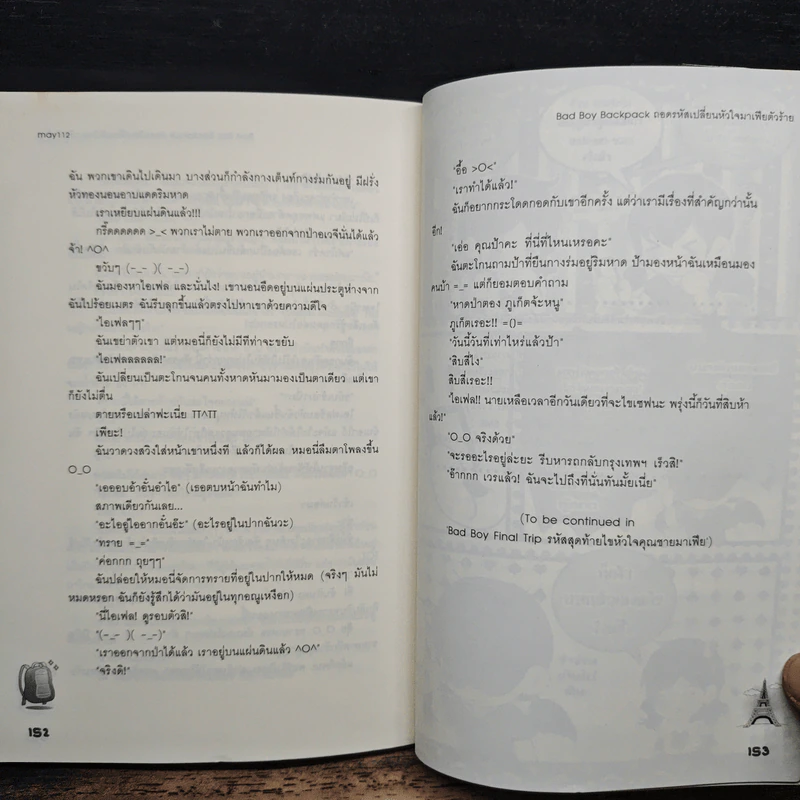 may112
ฉัน พวกเขาเดินไปเดินมา บางส่วนก็กำลังกางเต็นท์กางร่มกันอยู่ มีฝรั่ง
หัวทองนอนอาบแดดริมหาด
เราเหยียบแผ่นดินแล้ว!!!
กรี๊ดดดดดด >_< พวกเราไม่ตาย พวกเราออกจากป่าอเวจีนั่นได้แล้ว
จ้า! ^O^
ขวับๆ (-_- )( -_-)
ฉันมองหาไอเฟล และนั่นไง! เขานอนอืดอยู่บนแผ่นประตูห่างจาก
ฉันไปร้อยเมตร ฉันรีบลุกขึ้นแล้วตรงไปหาเขาด้วยความดีใจ
"ไอเฟลๆๆ"
ฉันเขย่าตัวเขา แต่หมอนี่ก็ยังไม่มีทีท่าจะขยับ
"ไอเฟลลลลลล!"
ฉันเปลี่ยนเป็นตะโกนจนคนทั้งหาดหันมามองเป็นตาเดียว แต่เขา
ก็ยังไม่ตื่น
ตายหรือเปล่าฟะเนี่ย TT^TT
เพียะ!
ฉันวาดวงสวิงใส่หน้าเขาหนึ่งที แล้วก็ได้ผล หมอนี่ลืมตาโพลงขึ้น
O_O
"เออออบอ้าอั้นอำไอ" (เธอตบหน้าฉันทำไม)
สภาพเดียวกันเลย...
"อะไออู่ไออากอั้นอ๊ะ" (อะไรอยู่ในปากฉันวะ)
"ทราย =_="
"ค่อกกก ถุยๆๆ"
ฉันปล่อยให้หมอนี่จัดการทรายที่อยู่ในปากให้หมด (จริงๆ มันไม่
หมดหรอก ฉันก็ยังรู้สึกได้ว่ามันอยู่ในทุกอณูเหงือก)
"นี่ไอเฟล! ดูรอบตัวสิ!"
"(-_- )( -_-)"
"เราออกจากป่าได้แล้ว เราอยู่บนแผ่นดินแล้ว ^O^"
"จริงดิ!"
152
Bad Boy Backpack ถอดรหัสเปลี่ยนหัวใจมาเฟียตัวร้าย
"อื้อ >O<"
"เราทำได้แล้ว!"
ฉันก็อยากกระโดดกอดกับเขาอีกครั้ง แต่ว่าเรามีเรื่องที่สำคัญกว่านั้น
อีก!
"เอ่อ คุณป้าคะ ที่นี่ที่ไหนเหรอคะ"
ฉันตะโกนถามป้าที่ยืนกางร่มอยู่ริมหาด ป้ามองหน้าฉันเหมือนมอง
คนบ้า =_= แต่ก็ยอมตอบคำถาม
"หาดป่าตอง ภูเก็ตจ้ะหนู"
ภูเก็ตเรอะ!! =()=
"วันนี้วันที่เท่าไหร่แล้วป้า"
"สิบสี่ไง"
สิบสี่เรอะ!!
"ไอเฟล!! นายเหลือเวลาอีกวันเดียวที่จะไขเซฟนะ พรุ่งนี้ก็วันที่สิบห้า
แล้ว!"
"O_O จริงด้วย"
"จะรออะไรอยู่ล่ะยะ รีบหารถกลับกรุงเทพฯ เร็วสิ!"
"อ๊ากกก เวรแล้ว! ฉันจะไปถึงที่นั่นทันมั้ยเนี่ย"
(To be continued in
'Bad Boy Final Trip รหัสสุดท้ายไขหัวใจคุณชายมาเฟีย')
153